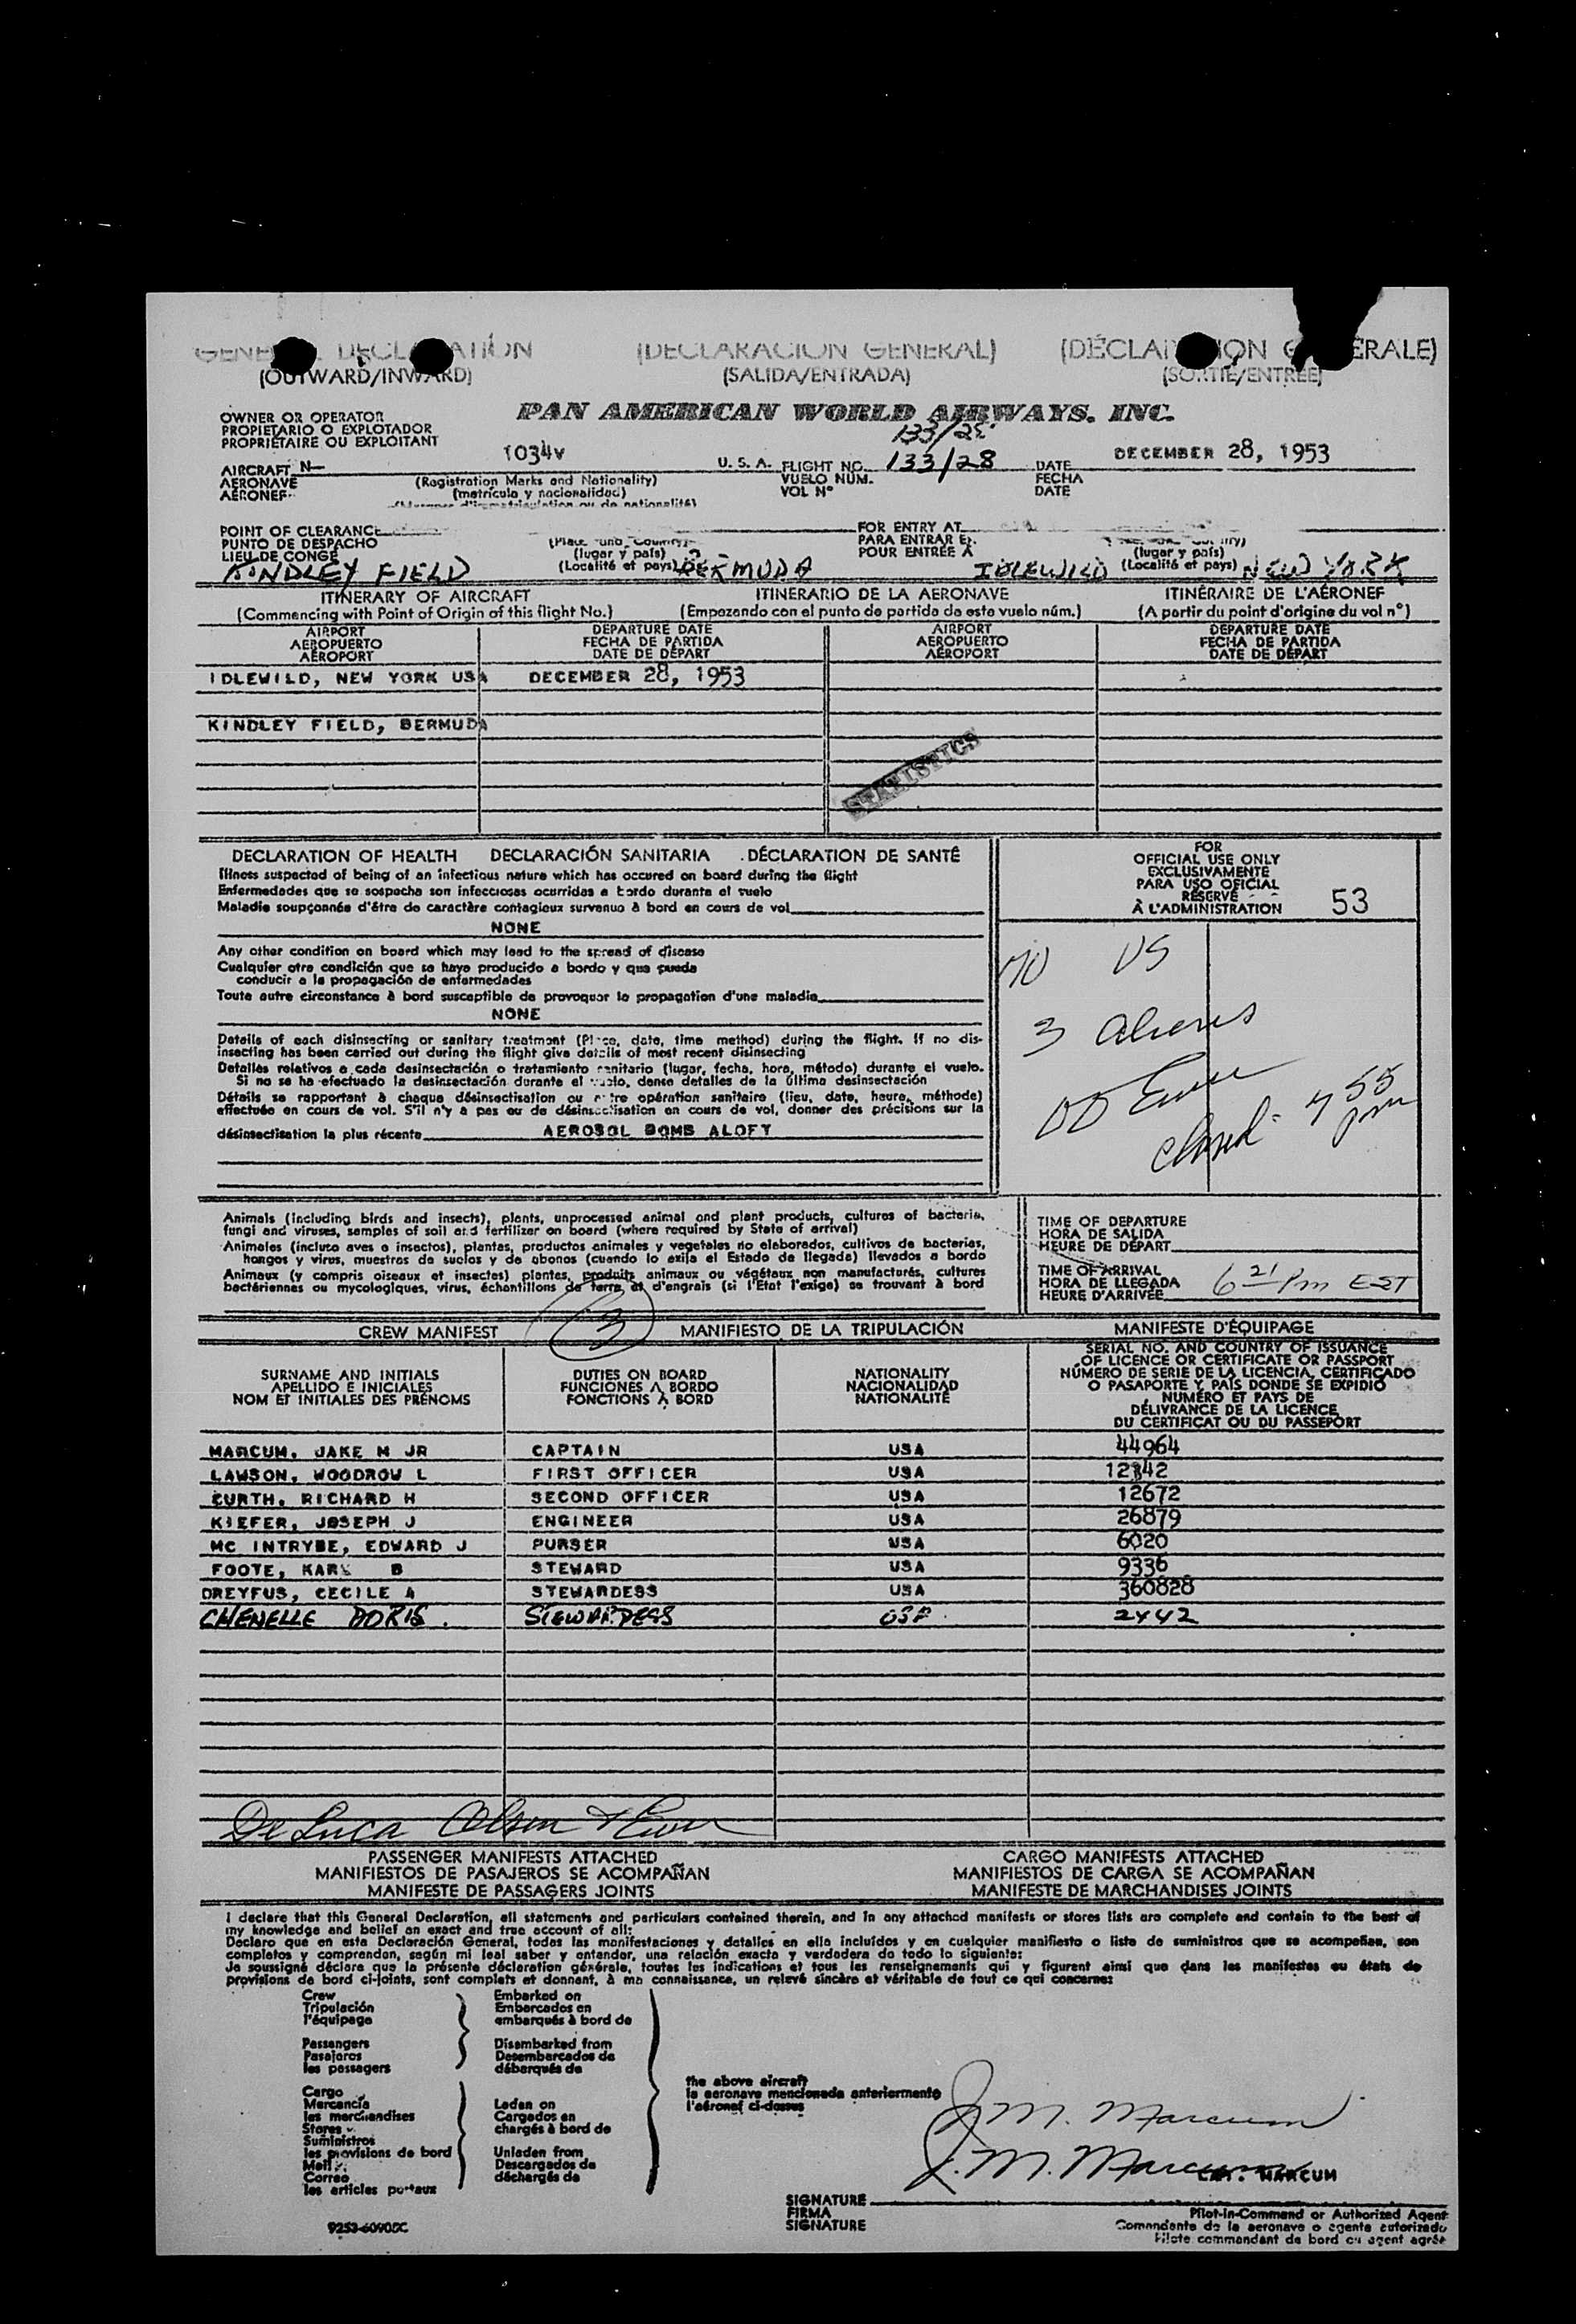 GENE DECLARATION (DECLARACIÓN GENERAL) (DÉCLARATION GÉNÉRALE)
(OUTWARD/INWARD) (SALIDA/ENTRADA) (SORTIE/ENTRÉE)
PAN AMERICAN WORLD AIRWAYS. INC.
OWNER OR OPERATOR
PROPIETARIO O EXPLOTADOR
PROPRIÉTAIRE OU EXPLOITANT
AIRCRAFT N- 1034V U. S. A. FLIGHT NO. 133/28 DATE DECEMBER 28, 1953
AERONAVE (Registration Marks and Nationality) VUELO NUM. FECHA
AÉRONEF (matrícula y nacionalidad) VOL Nº DATE
POINT OF CLEARANCE FOR ENTRY AT
PUNTO DE DESPACHO (Place and Country) PARA ENTRAR EN
LIEU DE CONGÉ (lugar y país) POUR ENTRÉE À (lugar y país)
KINDLEY FIELD (Localité et pays) BERMUDA IDLEWILD (Localité et pays) NEW YORK
ITINERARY OF AIRCRAFT ITINERARIO DE LA AERONAVE ITINÉRAIRE DE L'AÉRONEF
(Commencing with Point of Origin of this flight No.) (Empezando con el punto de partida de este vuelo núm.) (A partir du point d'origine du vol nº)
AIRPORT DEPARTURE DATE AIRPORT DEPARTURE DATE
AEROPUERTO FECHA DE PARTIDA AEROPUERTO FECHA DE PARTIDA
AÉROPORT DATE DE DÉPART AÉROPORT DATE DE DÉPART
IDLEWILD, NEW YORK USA DECEMBER 28, 1953
KINDLEY FIELD, BERMUDA
STATISTICS
DECLARATION OF HEALTH DECLARACIÓN SANITARIA DÉCLARATION DE SANTÉ
Illness suspected of being of an infectious nature which has occured on board during the flight
Enfermedades que se sospecha son infecciosas ocurridas a bordo durante el vuelo
Maladie soupçonnée d'être de caractère contagieux survenue à bord en cours de vol
NONE
Any other condition on board which may lead to the spread of disease
Cualquier otra condición que se haya producido a bordo y que pueda
conducir a la propagación de enfermedades
Toute autre circonstance à bord susceptible de provoquer la propagation d'une maladie
NONE
Details of each disinsecting or sanitary treatment (Place, date, time method) during the flight. If no dis-
insecting has been carried out during the flight give details of most recent disinsecting
Detalles relativos a cada desinsectación o tratamiento sanitario (lugar, fecha, hora, método) durante el vuelo.
Si no se ha efectuado la desinsectación durante el vuelo, dense detalles de la última desinsectación
Détails se rapportant à chaque désinsectisation ou autre opération sanitaire (lieu, date, heure, méthode)
effectuée en cours de vol. S'il n'y a pas eu de désinsectisation en cours de vol, donner des précisions sur la
désinsectisation la plus récente AEROSOL BOMB ALOFT
FOR
OFFICIAL USE ONLY
EXCLUSIVAMENTE
PARA USO OFICIAL
RÉSERVÉ
À L'ADMINISTRATION 53
US
3 Aliens
closed - 7 55 pm
Animals (including birds and insects), plants, unprocessed animal and plant products, cultures of bacteria,
fungi and viruses, samples of soil and fertilizer on board (where required by State of arrival)
Animales (incluso aves e insectos), plantas, productos animales y vegetales no elaborados, cultivos de bacterias,
hongos y virus, muestras de suelos y de abonos (cuando lo exija el Estado de llegada) llevados a bordo
Animaux (y compris oiseaux et insectes) plantes, produits animaux ou végétaux non manufacturés, cultures
bactériennes ou mycologiques, virus, échantillons de terre et d'engrais (si l'Etat l'exige) se trouvant à bord
TIME OF DEPARTURE
HORA DE SALIDA
HEURE DE DÉPART
TIME OF ARRIVAL
HORA DE LLEGADA 6 21 Pm EST
HEURE D'ARRIVÉE
3
CREW MANIFEST MANIFIESTO DE LA TRIPULACIÓN MANIFESTE D'ÉQUIPAGE
SURNAME AND INITIALS
APELLIDO E INICIALES
NOM ET INITIALES DES PRÉNOMS
DUTIES ON BOARD
FUNCIONES A BORDO
FONCTIONS À BORD
NATIONALITY
NACIONALIDAD
NATIONALITÉ
SERIAL NO. AND COUNTRY OF ISSUANCE
OF LICENCE OR CERTIFICATE OR PASSPORT
NÚMERO DE SERIE DE LA LICENCIA, CERTIFICADO
O PASAPORTE Y PAÍS DONDE SE EXPIDIÓ
NUMÉRO ET PAYS DE
DÉLIVRANCE DE LA LICENCE
DU CERTIFICAT OU DU PASSEPORT
MARCUM, JAKE M JR CAPTAIN USA 44964
LAWSON, WOODROW L FIRST OFFICER USA
CURTH, RICHARD H SECOND OFFICER USA 12672
KIEFER, JOSEPH J ENGINEER USA 26879
MC INTRYBE, EDWARD J PURSER USA 6020
FOOTE, KARL B STEWARD USA 9336
DREYFUS, CECILE A STEWARDESS USA 360828
CHENELLE DORIS. STEWARDESS USA 2442
De Luca Olsen
PASSENGER MANIFESTS ATTACHED CARGO MANIFESTS ATTACHED
MANIFIESTOS DE PASAJEROS SE ACOMPAÑAN MANIFIESTOS DE CARGA SE ACOMPAÑAN
MANIFESTE DE PASSAGERS JOINTS MANIFESTE DE MARCHANDISES JOINTS
I declare that this General Declaration, all statements and particulars contained therein, and in any attached manifests or stores lists are complete and contain to the best of
my knowledge and belief an exact and true account of all:
Declaro que en esta Declaración General, todas las manifestaciones y detalles en ella incluidos y en cualquier manifiesto o lista de suministros que se acompañan, son
completos y comprenden, según mi leal saber y entender, una relación exacta y verdadera de todo lo siguiente:
Je soussigné déclare que la présente déclaration générale, toutes les indications et tous les renseignements qui y figurent ainsi que dans les manifestes ou états de
provisions de bord ci-joints, sont complets et donnent, à ma connaissance, un relevé sincère et véritable de tout ce qui concerne:
Crew Embarked on
Tripulación Embarcados en
l'équipage embarqués à bord de
Passengers Disembarked from
Pasajeros Desembarcados de
les passagers débarqués de
the above aircraft
la aeronave mencionada anteriormente
l'aéronef ci-dessus
Cargo
Mercancía Laden on
les marchandises Cargados en
Stores chargés à bord de
Suministros
les provisions de bord Unladen from
Mail Descargados de
Correo déchargés de
les articles postaux
J. M. Marcum
J. M. Marcum
MARCUM
SIGNATURE
FIRMA
SIGNATURE
Pilot-in-Command or Authorized Agent
Comandante de la aeronave o agente autorizado
Pilote commandant de bord ou agent agréé
9253-60905C